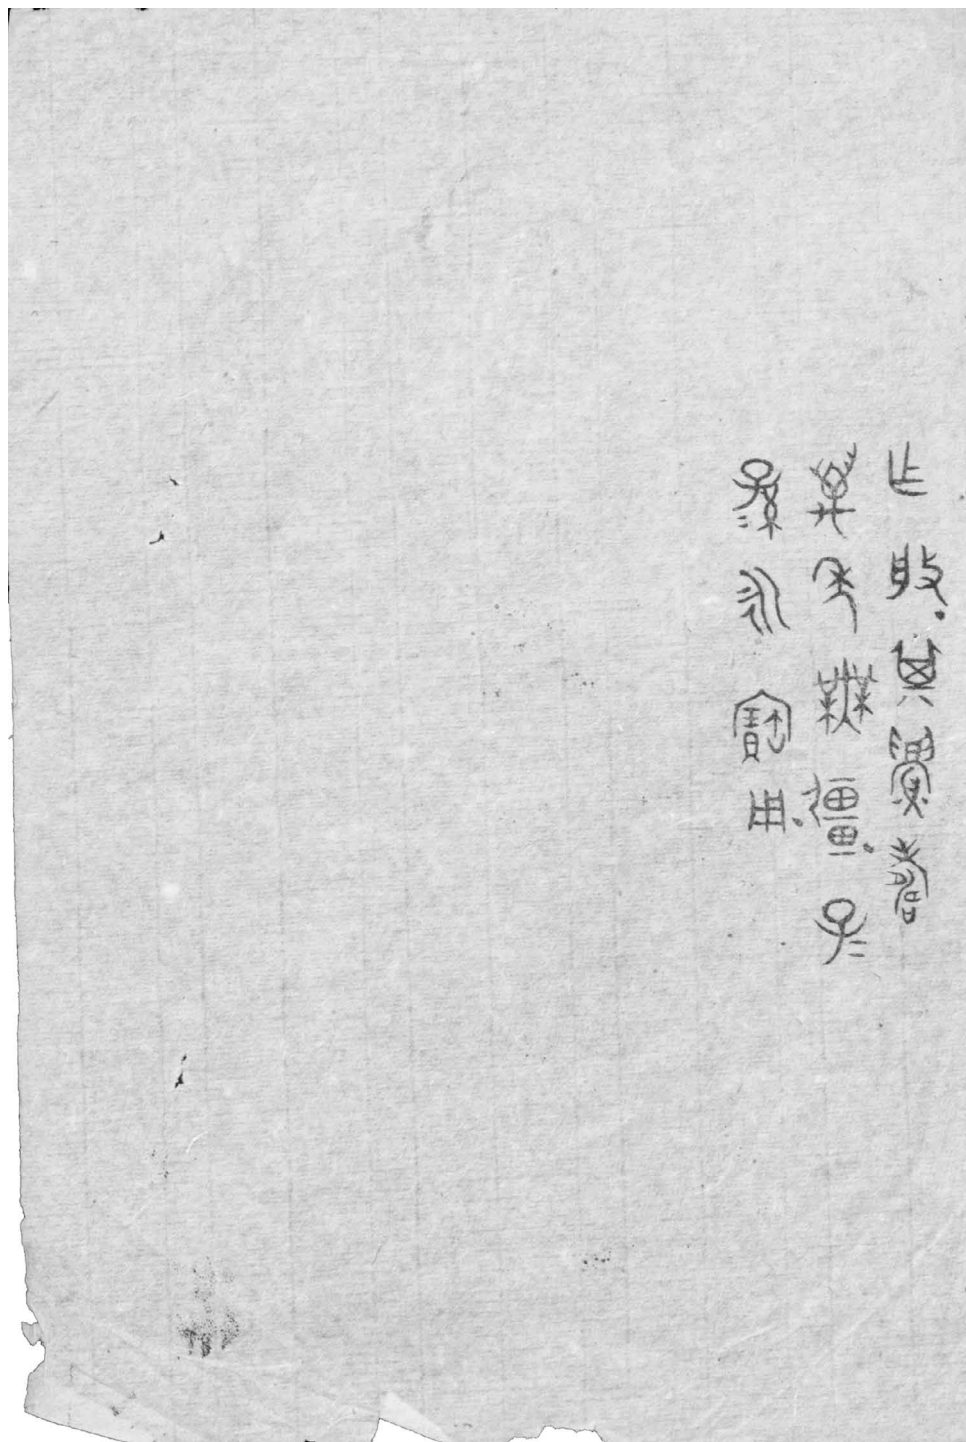 乍其眉壽
萬年無彊子=
孫=永寶用